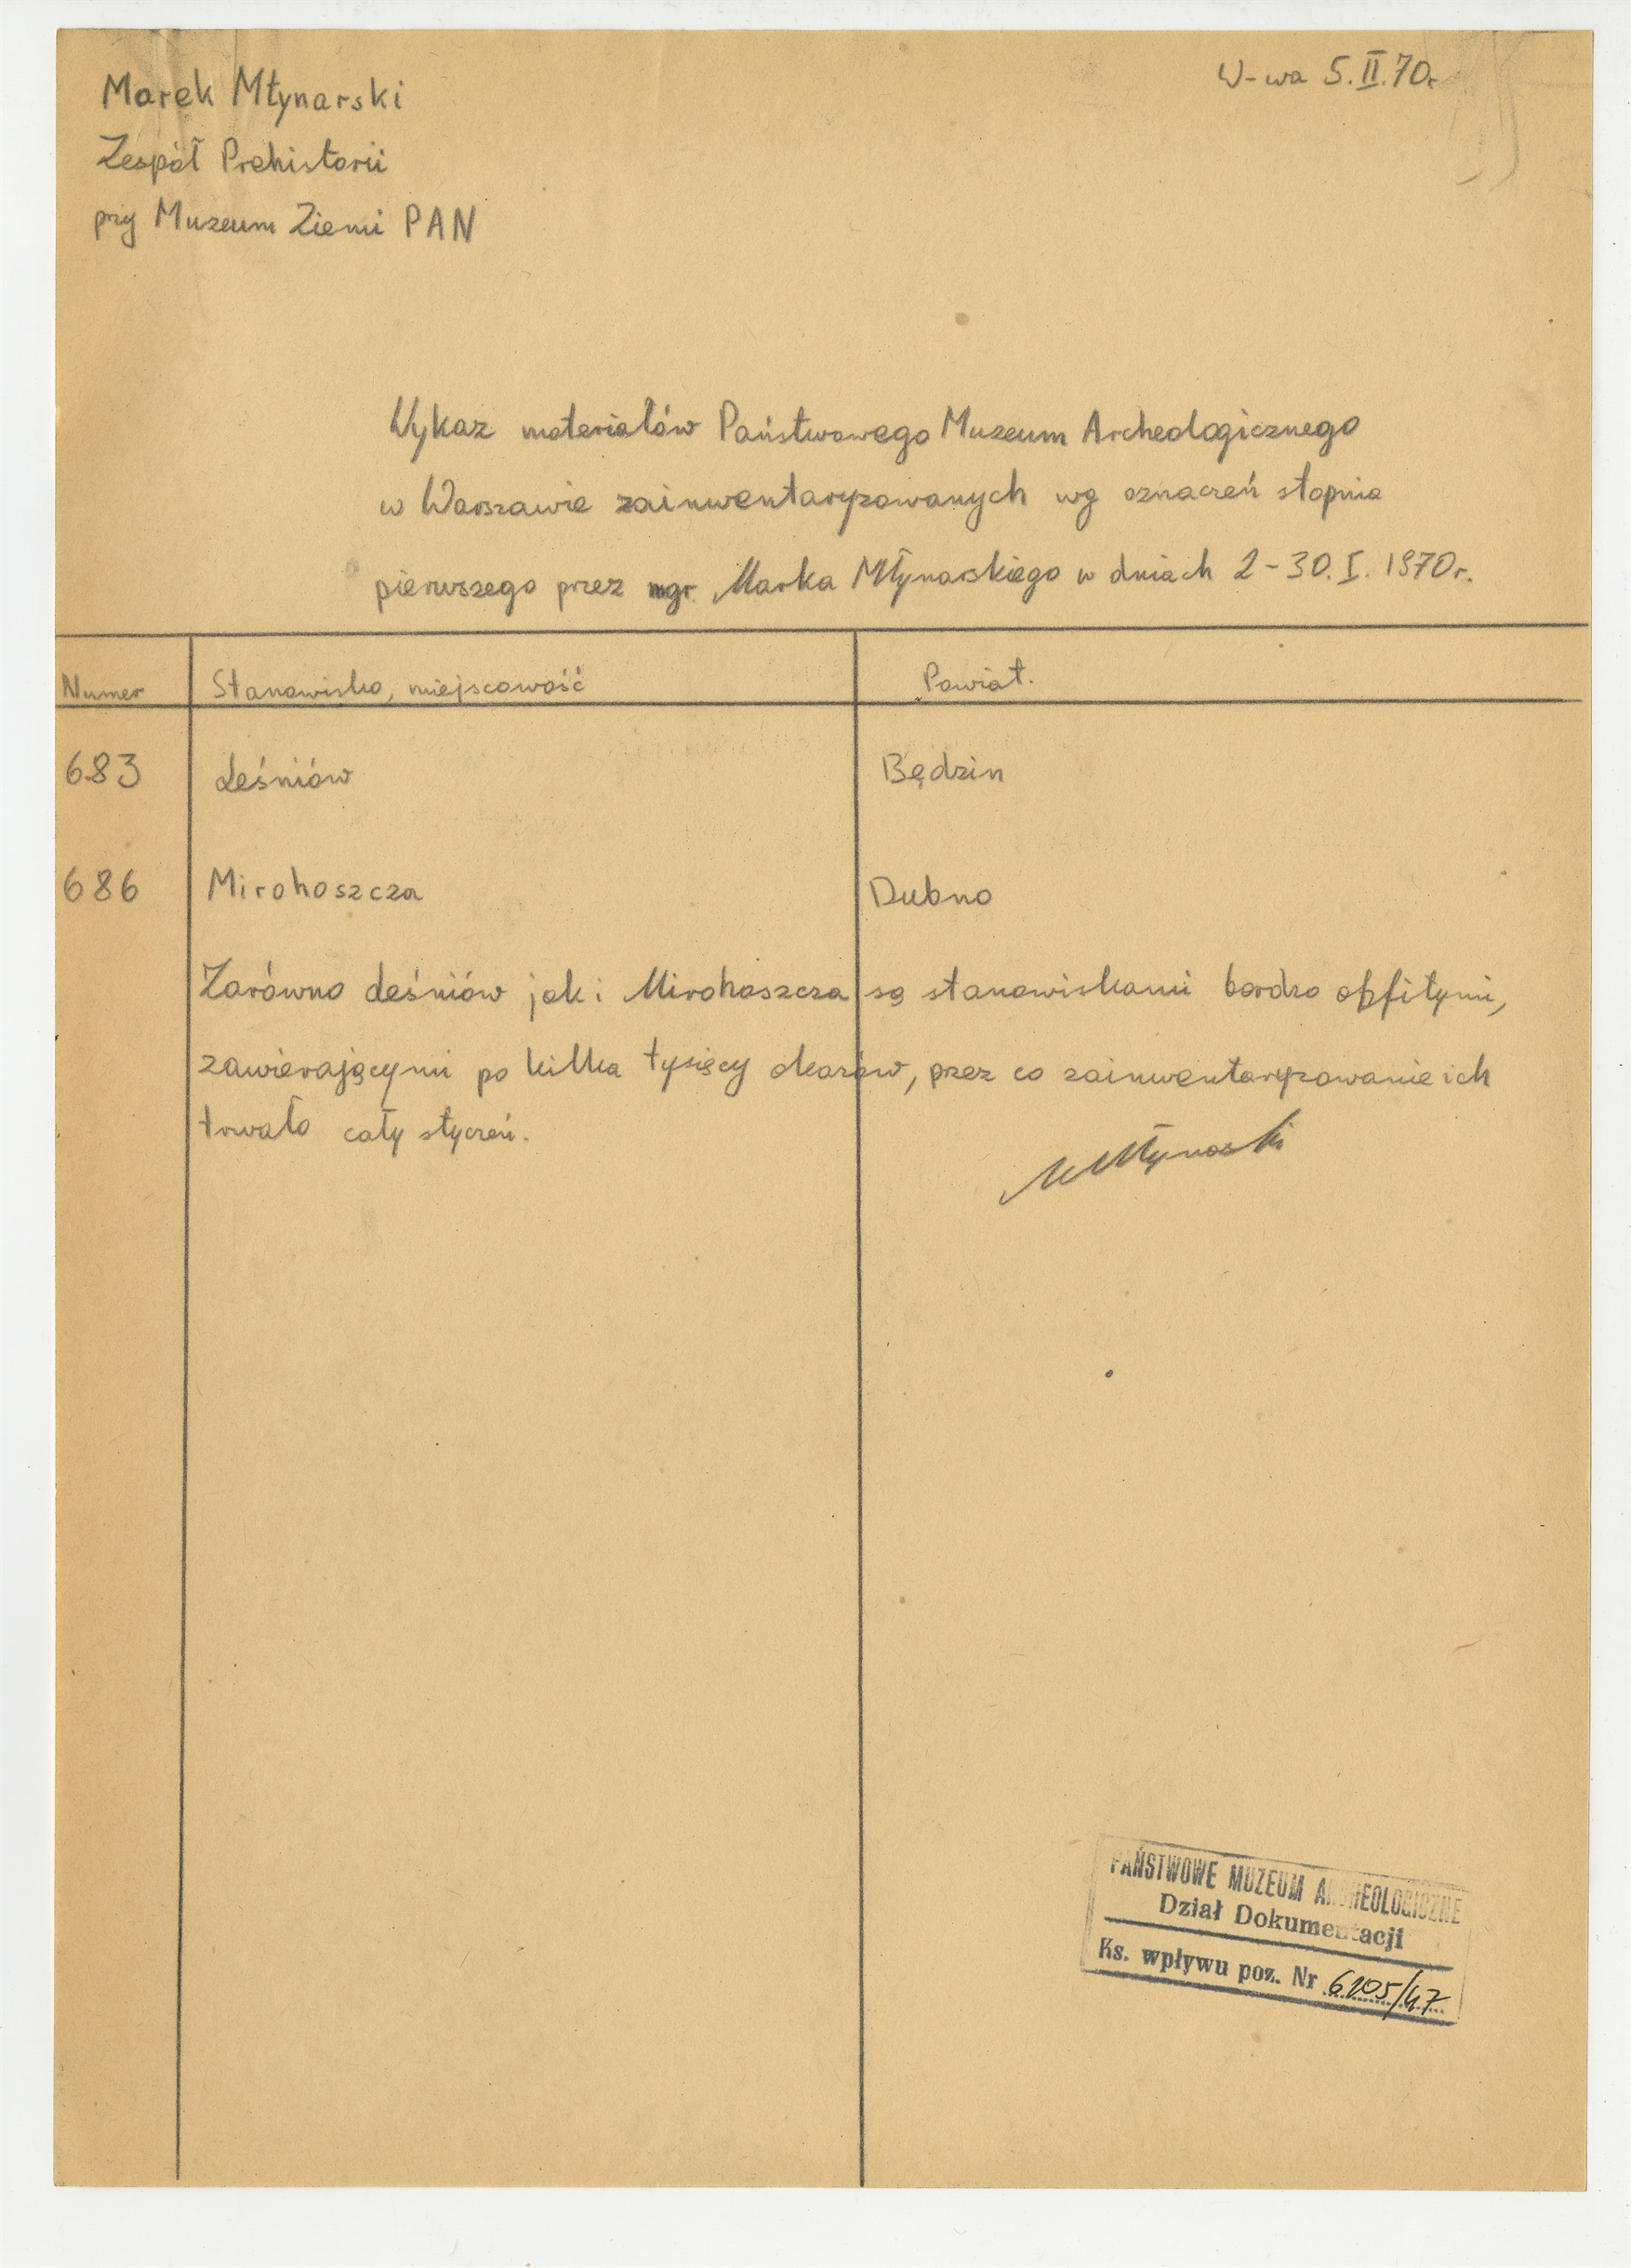 Marek Młynarski
Zespół Prehistorii
przy Muzeum Ziemi PAN
W-wa 5.II.70r.
Wykaz materiałów Państwowego Muzeum Archeologicznego
w Warszawie zainwentaryzowanych wg oznaczeń stopnia
pierwszego przez mgr. Marka Młynarskiego w dniach 2-30.I.1970r.
Numer Stanowisko, miejscowość Powiat.
683 Leśniów Będzin
686 Mirohoszcza Dubno
Zarówno Leśniów jak i Mirohoszcza są stanowiskami bardzo obfitymi,
zawierającymi po kilka tysięcy okazów, przez co zainwentaryzowanie ich
trwało cały styczeń.
MMłynarski
PAŃSTWOWE MUZEUM ARCHEOLOGICZNE
Dział Dokumentacji
Ks. wpływu poz. Nr 6105/47